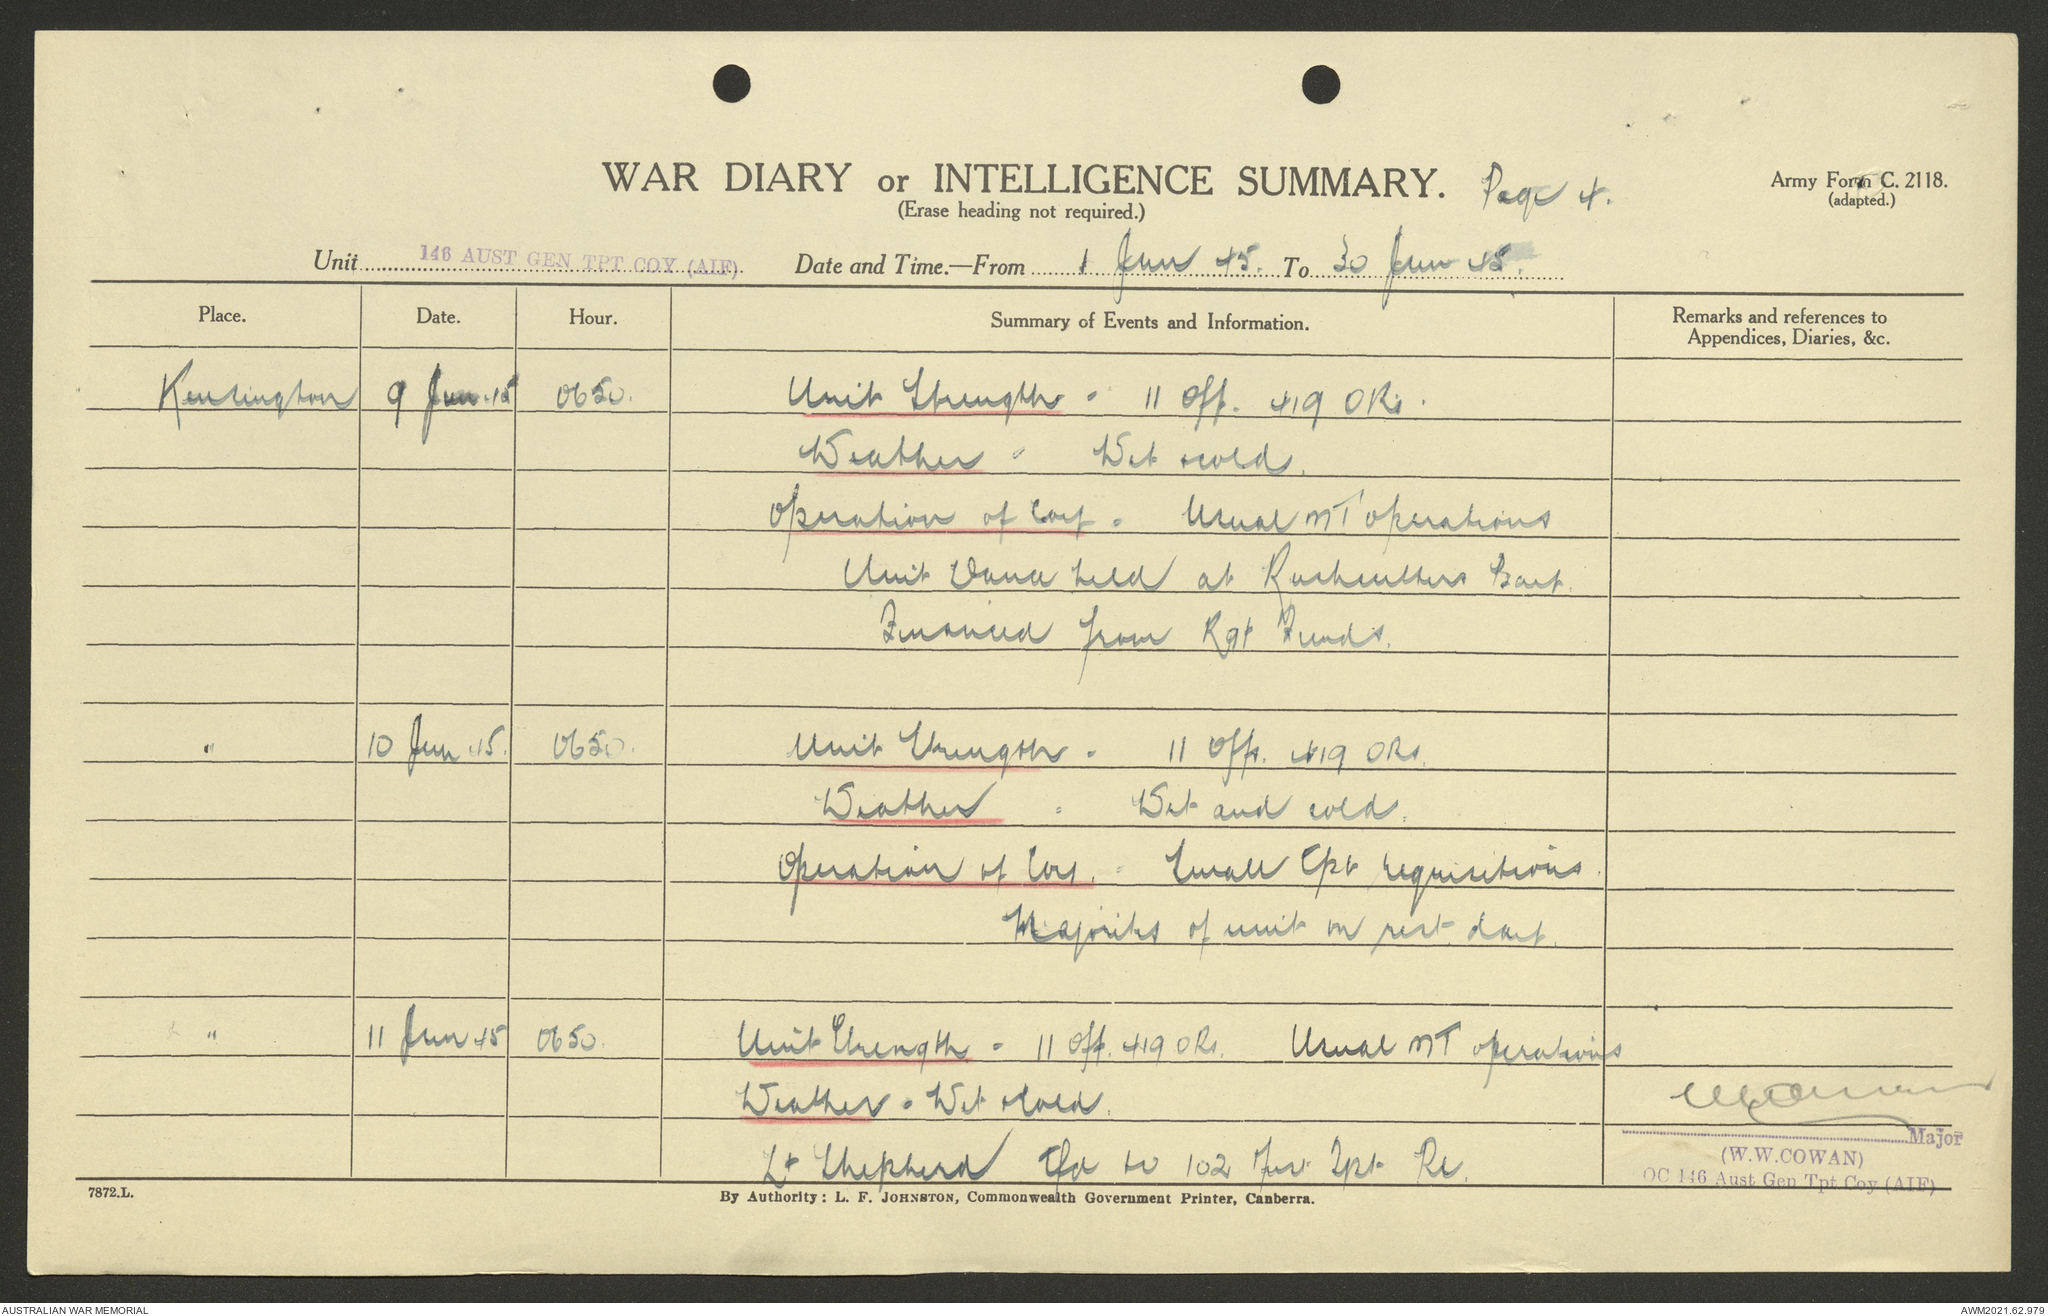 WAR DIARY or INTELLIGENCE SUMMARY. Page 4.
(Erase heading not required.)
Army Form C. 2118.
(adapted.)
Unit 146 AUST GEN TPT COY (AIF) Date and Time.—From 1 Jun 45. To 30 Jun 45.
Place. Date. Hour. Summary of Events and Information. Remarks and references to
Appendices, Diaries, &c.
Kensington 9 Jun 45 0650. Unit Strength - 11 Off. 419 ORs.
Weather - Wet & cold.
Operation of Coy - Usual MT operations
Unit Dance held at Rushcutters Bay.
Financed from Rgt Funds.
" 10 Jun 45. 0650. Unit Strength - 11 Offs. 419 ORs.
Weather - Wet and cold.
Operation of Coy. - Small Tpt requisitions.
Majority of unit on rest day.
" 11 Jun 45 0650. Unit Strength - 11 Off. 419 ORs. Usual MT operations
Weather - Wet & cold.
Lt Shepherd Tfd to 102 Tpt
Major
(W.W.COWAN)
OC 146 Aust Gen Tpt Coy (AIF)
7872.L.
By Authority: L. F. JOHNSTON, Commonwealth Government Printer, Canberra.
AUSTRALIAN WAR MEMORIAL
AWM2021.62.979